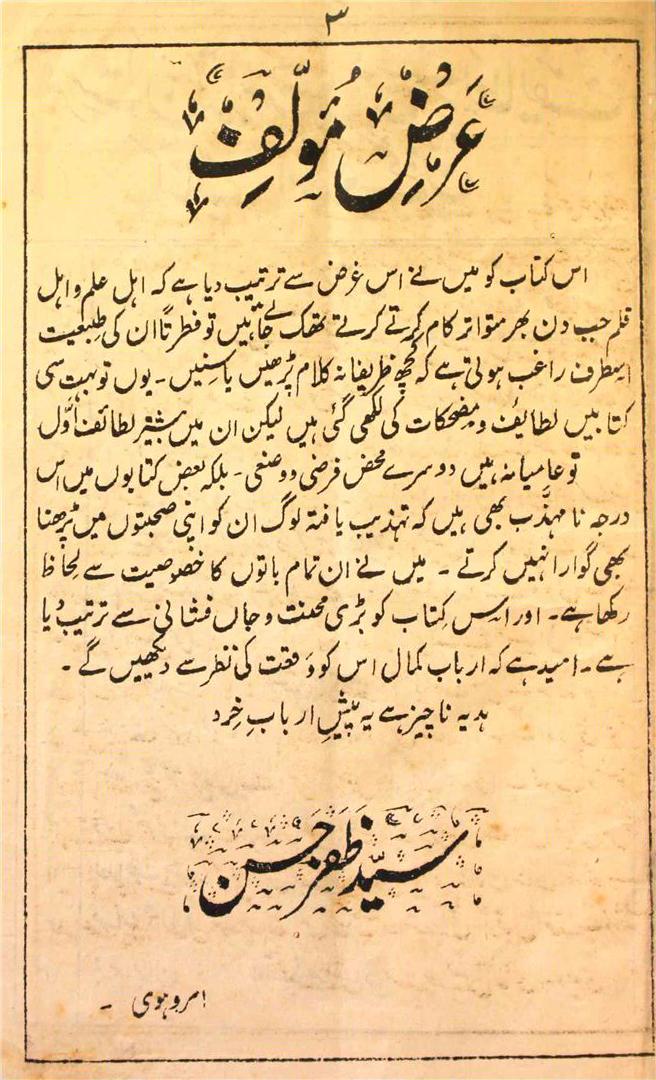 ۳
عَرَضِ مُؤلّفِ
اس کتاب کو میں نے اس غرض سے ترتیب دیا ہے کہ اہل علم و اہل
قلم جب دن بھر متواتر کام کرتے کرتے تھک جاتے ہیں تو فطرتاً ان کی طبیعت
اسطرف راغب ہوتی ہے کہ کچھ ظریفانہ کلام پڑھیں یا سنیں۔ یوں تو بہت سی
کتابیں لطایُف و مضحکات کی لکھی گئی ہیں لیکن ان میں بیشتر لطائف اوّل
تو عامیانہ ہیں دوسرے محض فرضی و وضعی۔ بلکہ بعض کتابوں میں اس
درجہ نامہذّب بھی ہیں کہ تہذیب یافتہ لوگ ان کو اپنی صحبتوں میں پڑھنا
بھی گوارا نہیں کرتے ۔ میں نے ان تمام باتوں کا خصوصیت سے لحاظ
رکھا ہے۔ اور اس کِتاب کو بڑی محنت و جاں فشانی سے ترتیب دیا
ہے ۔ امید ہے کہ ارباب کمال اس کو وَقعت کی نظر سے دیکھیں گے ۔
ہدیہ ناچیز ہے یہ پیشِ اربابِ خِرد
سیّد ظفر حسن
امروہوی ۔